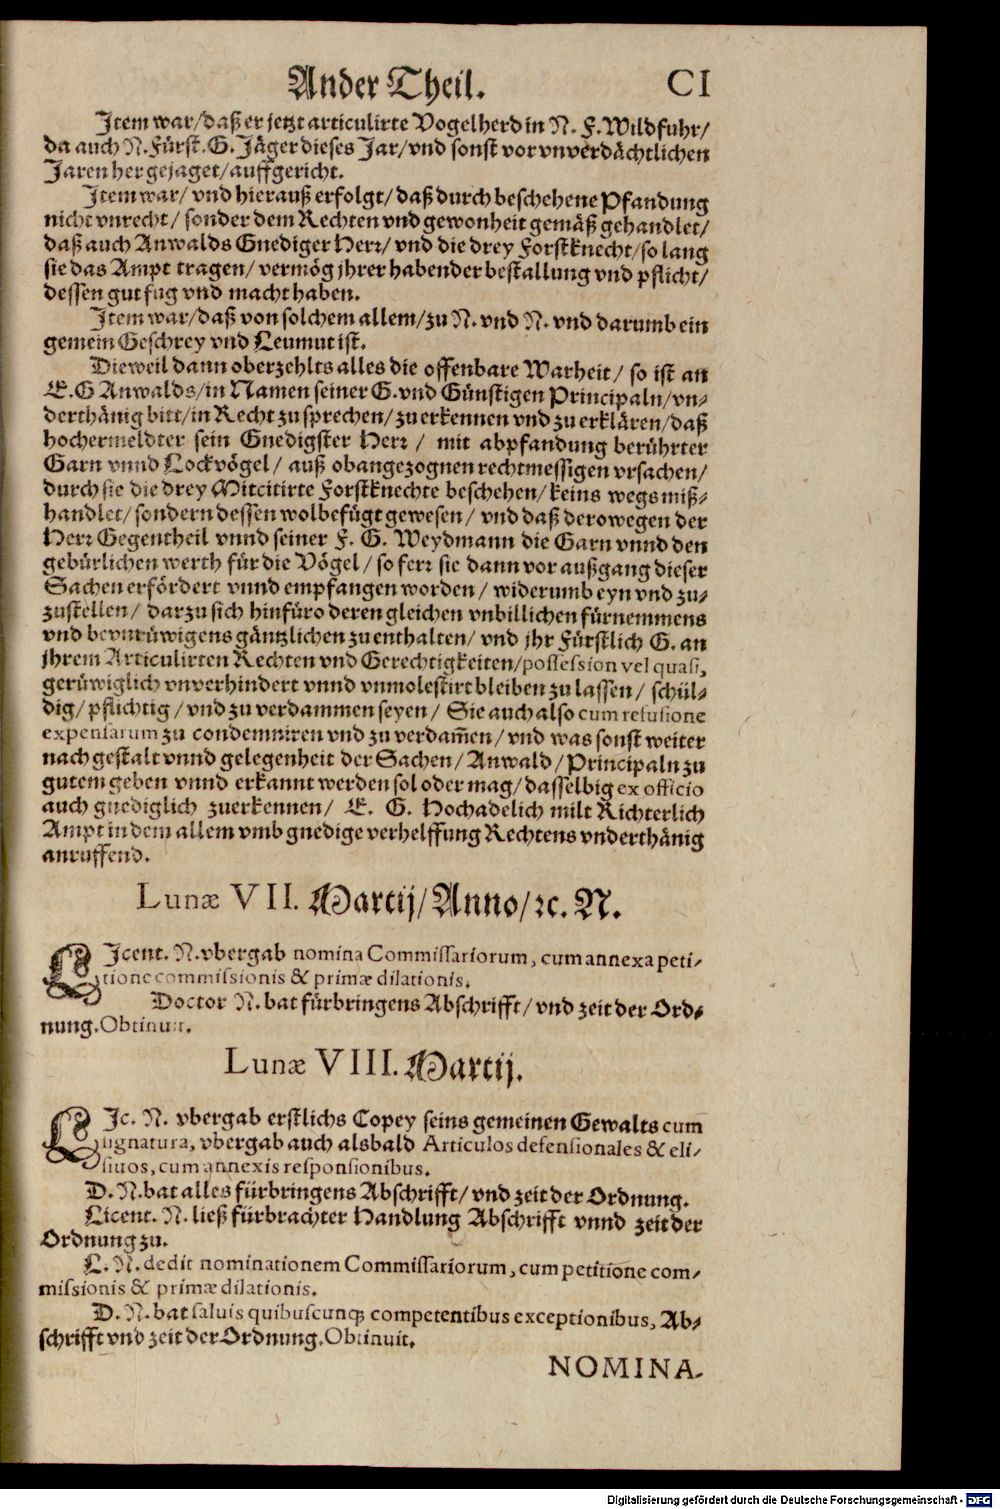 Ander Theil. CI
Item war/daß er jetzt articulirte Vogelherd in N. F. Wildfuhr/
da auch N. Fürst. G. Jäger dieses Jar/vnd sonst vor vnverdächtlichen
Jaren her gejaget/auffgericht.
Item war/ vnd hierauß erfolgt/daß durch beschehene Pfandung
nicht vnrecht/ sonder dem Rechten vnd gewonheit gemäß gehandlet/
daß auch Anwalds Gnediger Herr/ vnd die drey Forstknecht/so lang
sie das Ampt tragen/ vermög jhrer habender bestallung vnd pflicht/
dessen gut fug vnd macht haben.
Item war/daß von solchem allem/zu N. vnd N. vnd darumb ein
gemein Geschrey vnd Leumut ist.
Dieweil dann oberzehlts alles die offenbare Warheit/ so ist an
E.G Anwalds/in Namen seiner G. vnd Günstigen Principaln/vn-
derthänig bitt/in Recht zu sprechen/zu erkennen vnd zu erklären/daß
hochermeldter sein Gnedigster Herr / mit abpfandung berührter
Garn vnnd Lockvögel/ auß obangezognen rechtmessigen vrsachen/
durch sie die drey Mitcitirte Forstknechte beschehen/keins wegs miß-
handlet/sondern dessen wolbefügt gewesen/ vnd daß derowegen der
Herr Gegentheil vnnd seiner F. G. Weydmann die Garn vnnd den
gebürlichen werth für die Vögel/so ferr sie dann vor außgang dieser
Sachen erfördert vnnd empfangen worden/ widerumb eyn vnd zu-
zustellen/ darzu sich hinfüro deren gleichen vnbillichen fürnemmens
vnd bevnrüwigens gäntzlichen zu enthalten/ vnd jhr Fürstlich G. an
jhrem Articulirten Rechten vnd Gerechtigkeiten/possession vel quasi,
gerüwiglich vnverhindert vnnd vnmolestirt bleiben zu lassen/ schül-
dig/pflichtig/vnd zu verdammen seyen/ Sie auch also cum refusione
expensarum zu condemniren vnd zu verdam̃en/ vnd was sonst weiter
nach gestalt vnnd gelegenheit der Sachen/Anwald/Principaln zu
gutem geben vnnd erkannt werden sol oder mag/dasselbig ex officio
auch gnediglich zuerkennen/ E. G. Hochadelich milt Richterlich
Ampt in dem allem vmb gnedige verhelffung Rechtens vnderthänig
anruffend.
Lunæ VII. Martij/Anno/ꝛc. N.
LIcent. N. vbergab nomina Commissariorum, cum annexa peti-
tione commissionis & primæ dilationis.
Doctor N. bat fürbringens Abschrifft/ vnd zeit der Ord-
nung. Obtinuit.
Lunæ VIII. Martij.
LIc. N. vbergab erstlichs Copey seins gemeinen Gewalts cum
signatura, vbergab auch alsbald Articulos defensionales & eli-
siuos, cum annexis responsionibus.
D. N. bat alles fürbringens Abschrifft/ vnd zeit der Ordnung.
Licent. N. ließ fürbrachter Handlung Abschrifft vnnd zeit der
Ordnung zu.
L. N. dedit nominationem Commissariorum, cum petitione com-
missionis & primæ dilationis.
D. N. bat saluis quibuscunq; competentibus exceptionibus, Ab-
schrifft vnd zeit der Ordnung. Obtinuit.
NOMINA-
Digitalisierung gefördert durch die Deutsche Forschungsgemeinschaft - DFG